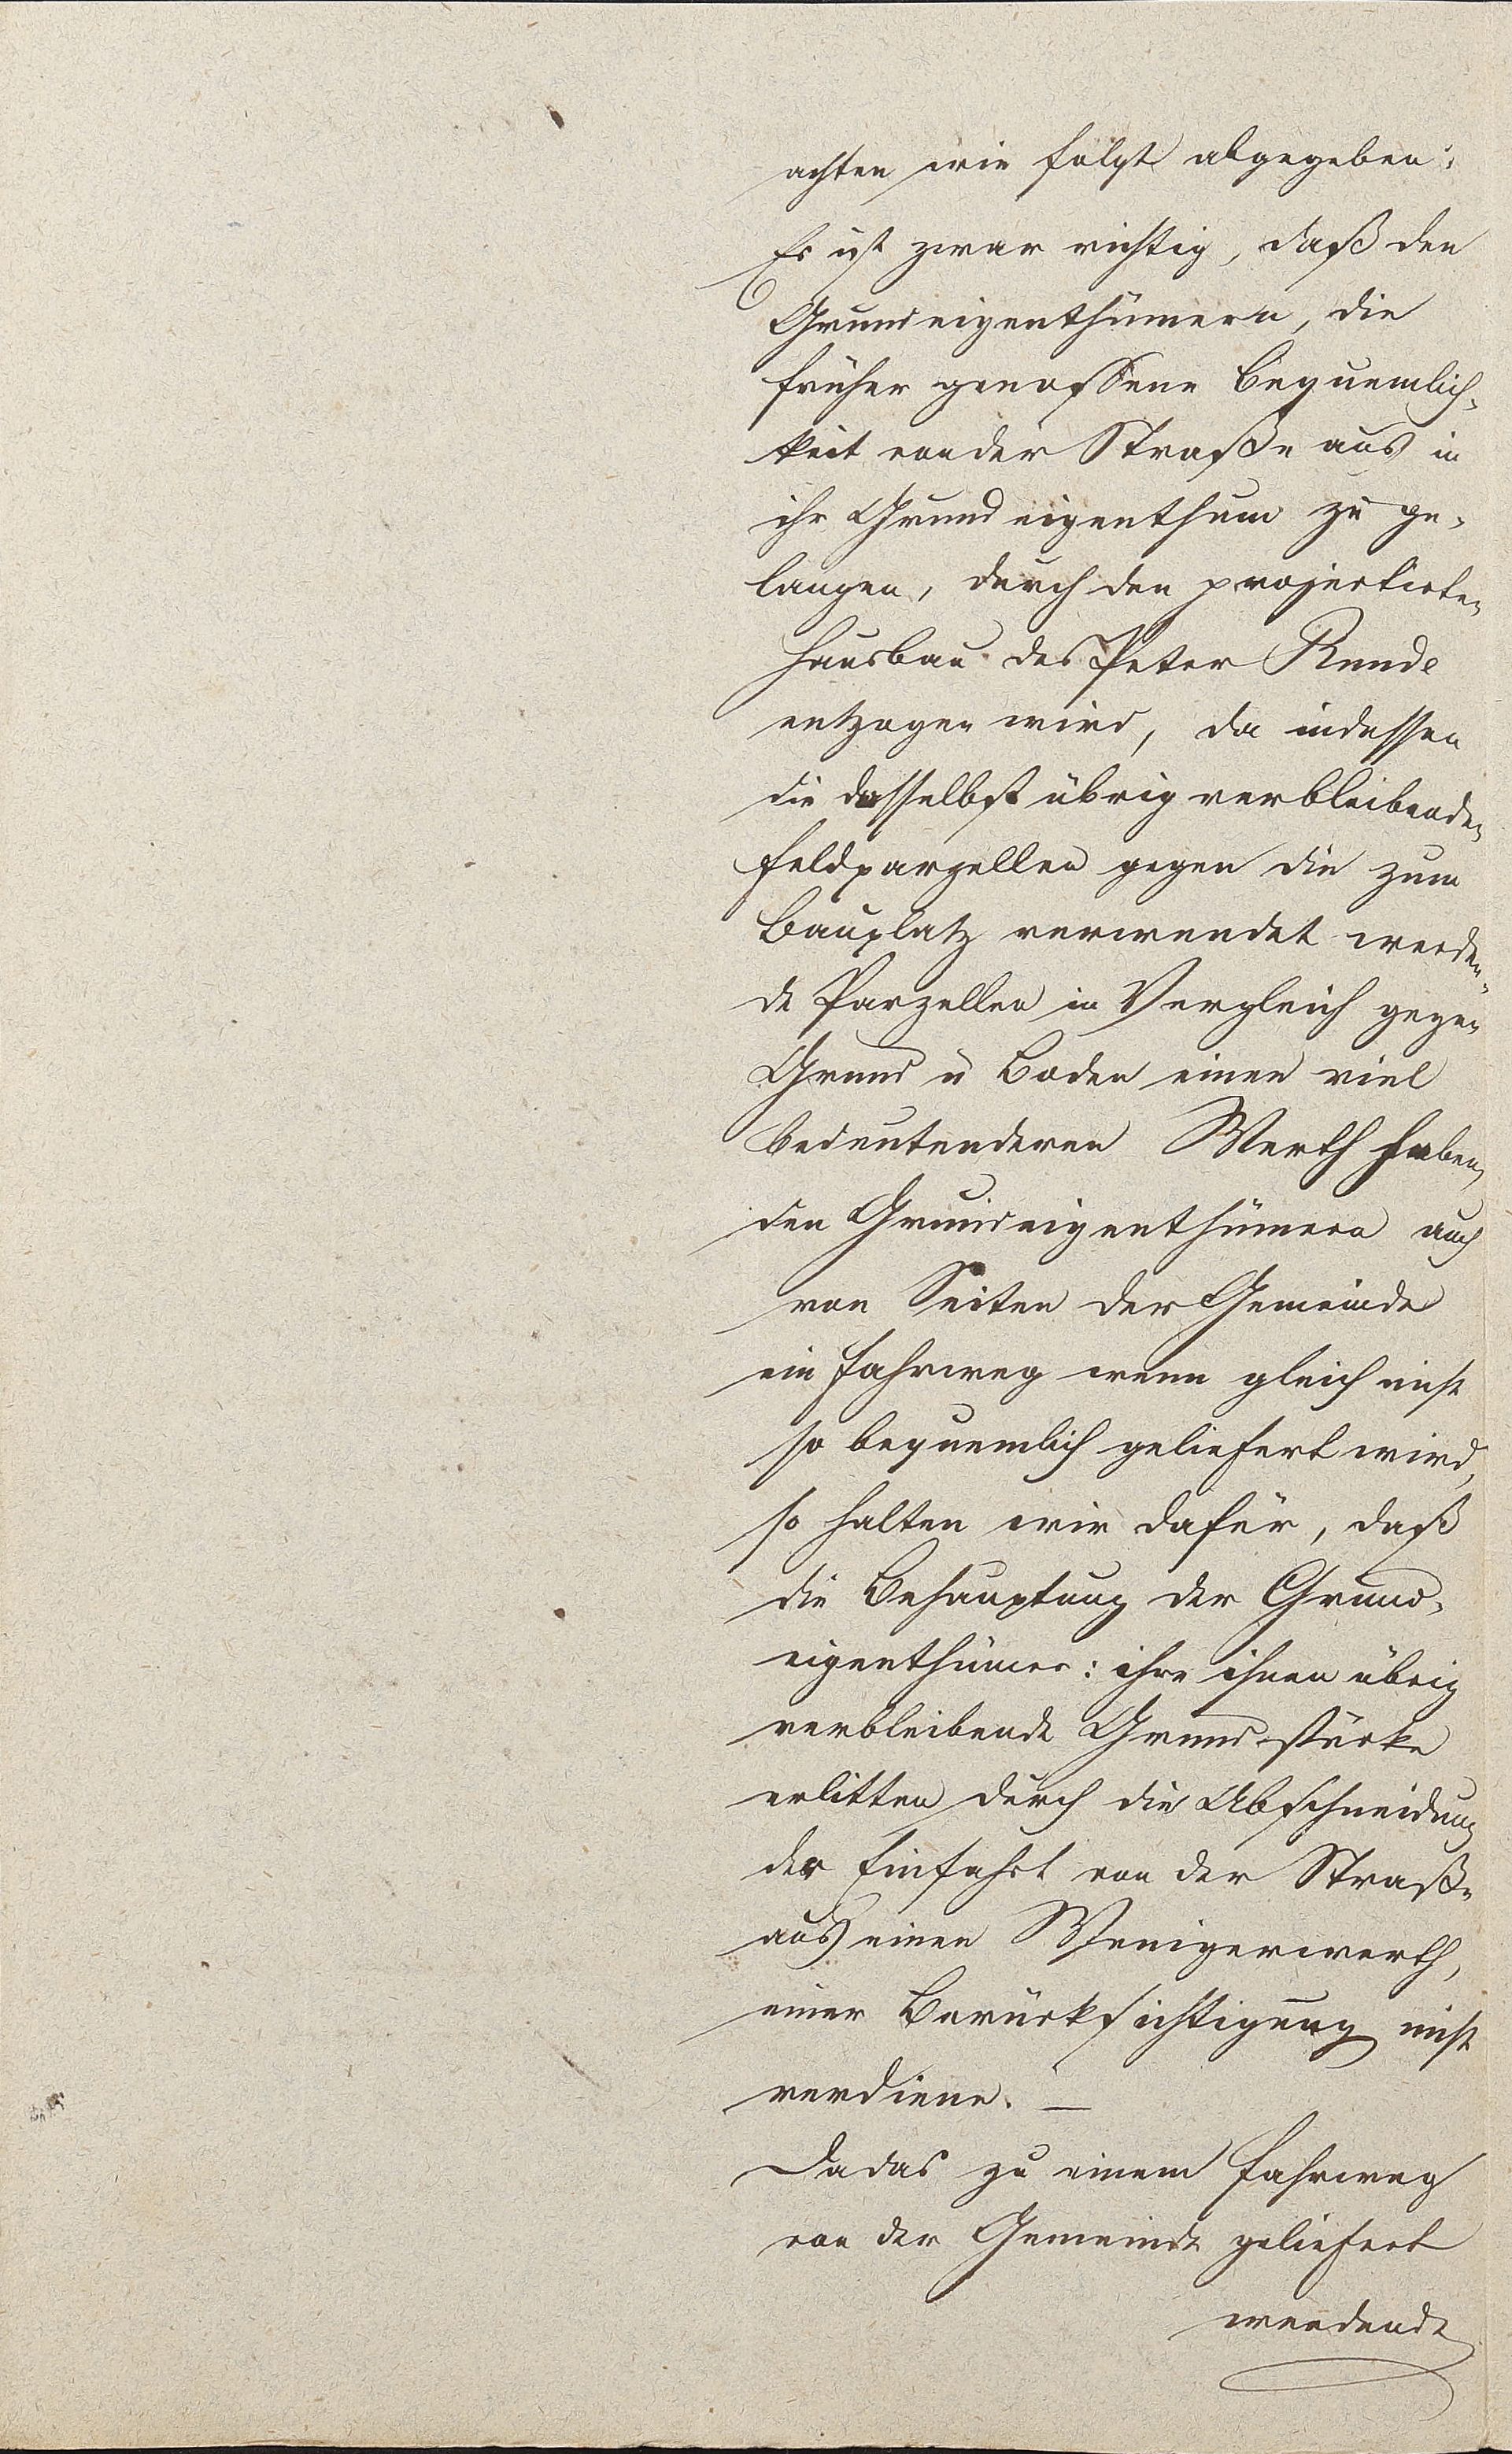 achten wie folgt abgegeben:
Es ist zwar richtig, daß den
Grundeigenthümern, die
früher genossene Bequemlich-
keit von der Straße aus in
ihr Grundeigenthum zu ge-
langen, durch den projectirten
Hausbau des Peter Runde
entzogen wird, da indessen
die dasselbst übrig verbleibenden
Feldparzellen gegen die zum
Bauplatz verwendet werden-
de Parzellen in Vergleich gegen
Grund u Boden einen viel
bedeutenderen Werth haben,
den Grundeigenthümern auch
von Seiten der Gemeinde
ein Fahrweg wenn gleich nicht
so bequemlich geliefert wird,
so halten wir dafür, daß
die Behauptung der Grund-
eigenthümer: ihre ihnen übrig
verbleibende Grundstücke
erlitten durch die Abschneidung
der Einfahrt von der Straße
aus einen Wenigerwerth,
einer Berücksichtigung nicht
verdiene. —
Da das zu einem Fahrweg
von der Gemeinde geliefert
werdende